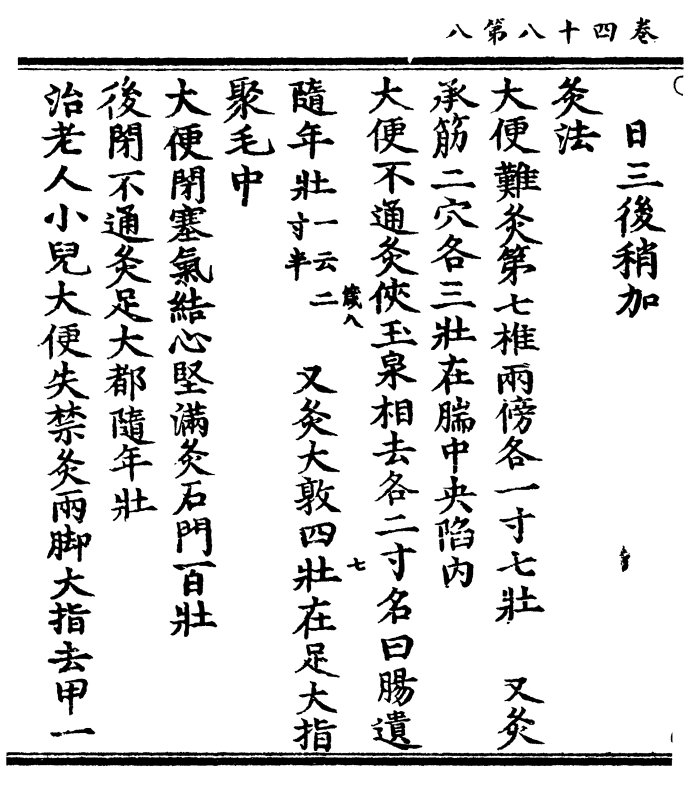 卷四十八第八
日三後稍加
灸法
大便難灸第七椎兩傍各一寸七壯 又灸
承筋二穴各三壯在腨中央陷內
大便不通灸俠玉泉相去各二寸名曰腸遺
隨年壯一云二寸半 又灸大敦四壯在足大指
聚毛中
大便閉塞氣結心堅滿灸石門一百壯
後閉不通灸足大都隨年壯
治老人小兒大便失禁灸兩脚大指去甲一
七